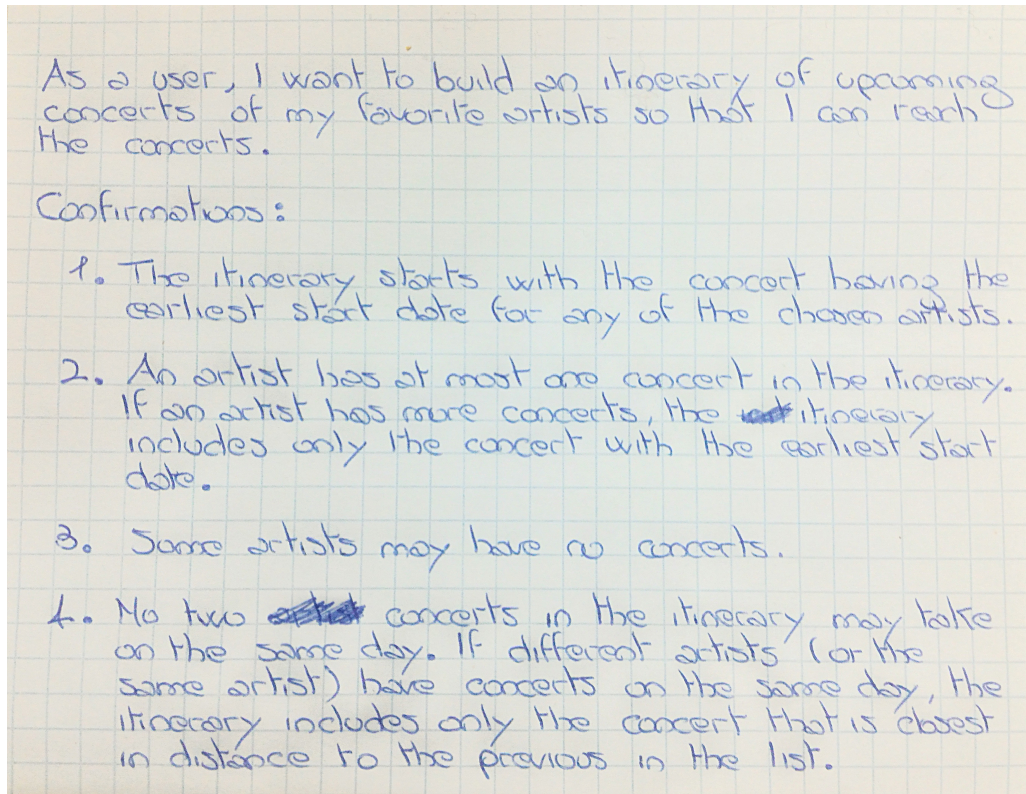 As a user, I want to build an itinerary of upcoming
concerts of my favorite artists so that I can reach
the concerts.
Confirmations:
1. The itinerary starts with the concert having the
earliest start date for any of the chosen artists.
2. An artist has at most one concert in the itinerary.
If an artist has more concerts, the itinerary
includes only the concert with the earliest start
date.
3. Some artists may have no concerts.
4. No two concerts in the itinerary may take
on the same day. If different artists (or the
same artist) have concerts on the same day, the
itinerary includes only the concert that is closest
in distance to the previous in the list.